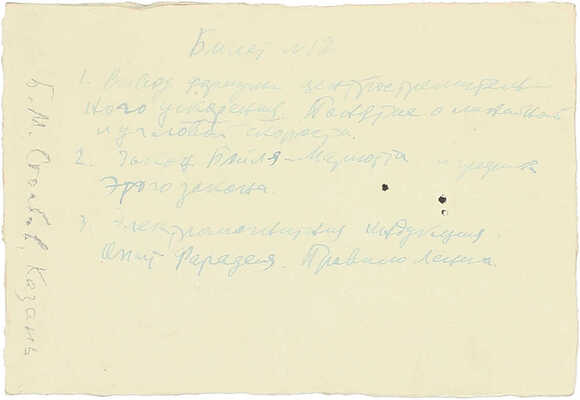 Билет № 12
1. Вывод формулы центростремитель-
ного ускорения. Понятие о линейной
и угловой скорости.
2. Закон Бойля-Мариотта и графики
этого закона.
3. Электромагнитная индукция.
Опыт Фарадея. Правило Ленца.
Б. М. Столбов, Казань